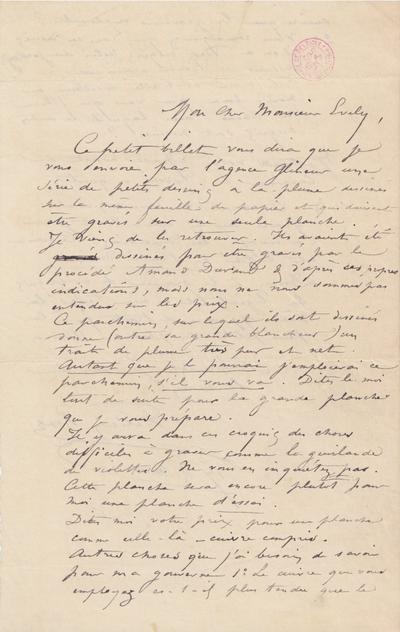 Mon cher Monsieur Evely,
Ce petit billet vous dira que je
vous envoie par l'agence Glineur une
série de petits dessins à la plume dessinés
sur la même feuille de papier et qui doivent
être gravés sur une seule planche.
Je viens de les retrouver. Ils avaient été
dessinés pour être gravés par le
procédé Amand Durand & d'après ses propres
indications, mais nous ne nous sommes pas
entendus sur les prix.
Ce parchemin, sur lequel ils sont dessinés
donne (outre sa grande blancheur) un
trait de plume très pur et net.
Autant que je le pourrai j'emploierai ce
parchemin, s'il vous va. Dites le moi
tout de suite pour la grande planche
que je vous prépare.
Il y aura dans ces croquis des choses
difficiles à graver comme la guirlande
de violettes. Ne vous en inquiétez pas.
Cette planche sera encore plutôt pour
moi une planche d'essai.
Dites moi votre prix pour une planche
comme celle-là – cuivre compris.
Autres choses que j'ai besoin de savoir
pour ma gouverne 1º Le cuivre que vous
employez est-il plus tendre que le